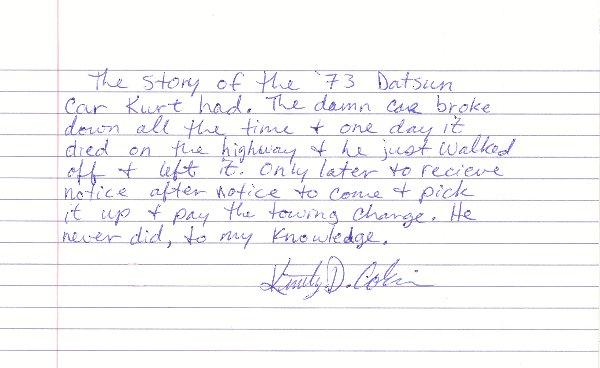 The story of the '73 Datsun
Car Kurt had. The damn car broke
down all the time + one day it
died on the highway + he just walked
off + left it. Only later to recieve
notice after notice to come + pick
it up + pay the towing charge. He
never did, to my knowledge.
D.